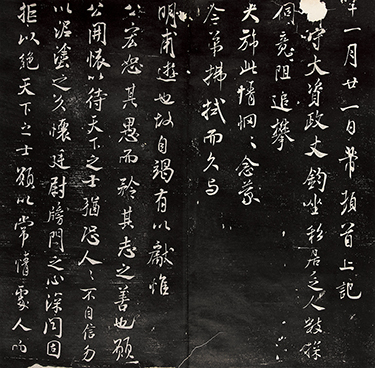 一月廿一日芾頓首上記
大資政丈鈞坐移居乏人數
伺竟阻追攀
大旆此情惘惘念蒙
令弟拂拭而久与
明甫遊也故自竭有以獻惟
公宏恕其愚而矜其志之善也願
公開懷以待天下之士猶恐人人不自信
以泥塗之久懷廷尉牓門之心深閉固
拒以絕天下之士願以常情處人而